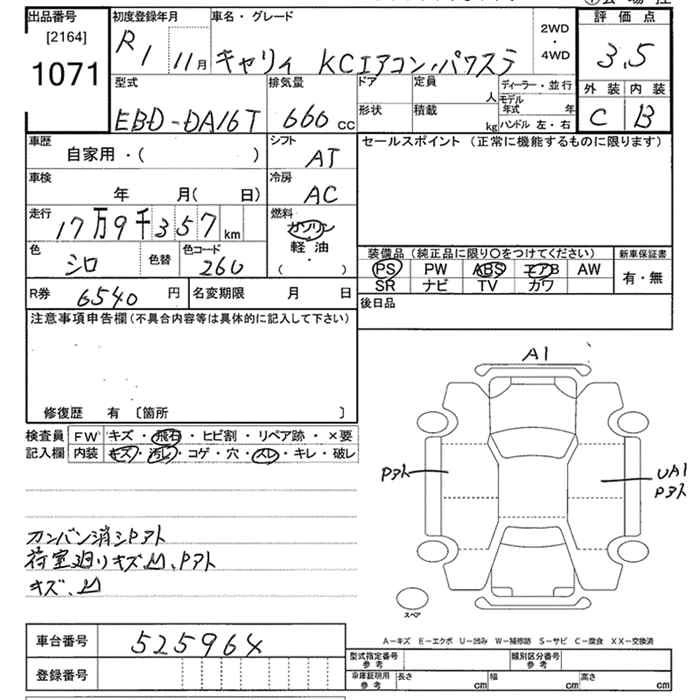 出品番号 初度登録年月 車名・グレード 2WD・4WD 評価点
[2164]
1071 R1 11月 キャリィ KCエアコン・パワステ 3.5
型式 排気量 ドア 定員 人 ディーラー・並行 外装 内装
EBD-DA16T 660cc 形状 積載 kg モデル年式 年 ハンドル 左・右 C B
車歴 シフト セールスポイント (正常に機能するものに限ります)
自家用・( ) AT
車検 冷房
年 月( 日) AC
走行 燃料
17万9千357km ガソリン
軽油
( )
色 色替 色コード
シロ 260
装備品 (純正品に限り○をつけてください) 新車保証書
PS PW ABS エアB AW 有・無
SR ナビ TV カワ
R券 6540円 名変期限 月 日
後日品
注意事項申告欄 (不具合内容等は具体的に記入して下さい)
修復歴 有 〔箇所 〕
検査員 FW キズ・飛石・ヒビ割・リペア跡・×要
記入欄 内装 キズ・汚レ・コゲ・穴・スレ・キレ・破レ
A1
Pアト
UA1
Pアト
カンバン消シPアト
荷室廻りキズ凹、Pアト
キズ、凹
スペア
A-キズ E-エクボ U-凹み W-補修跡 S-サビ C-腐食 XX-交換済
車台番号 525964
登録番号
型式指定番号 参考 類別区分番号 参考
車庫証明用 参考 長さ cm 幅 cm 高さ cm